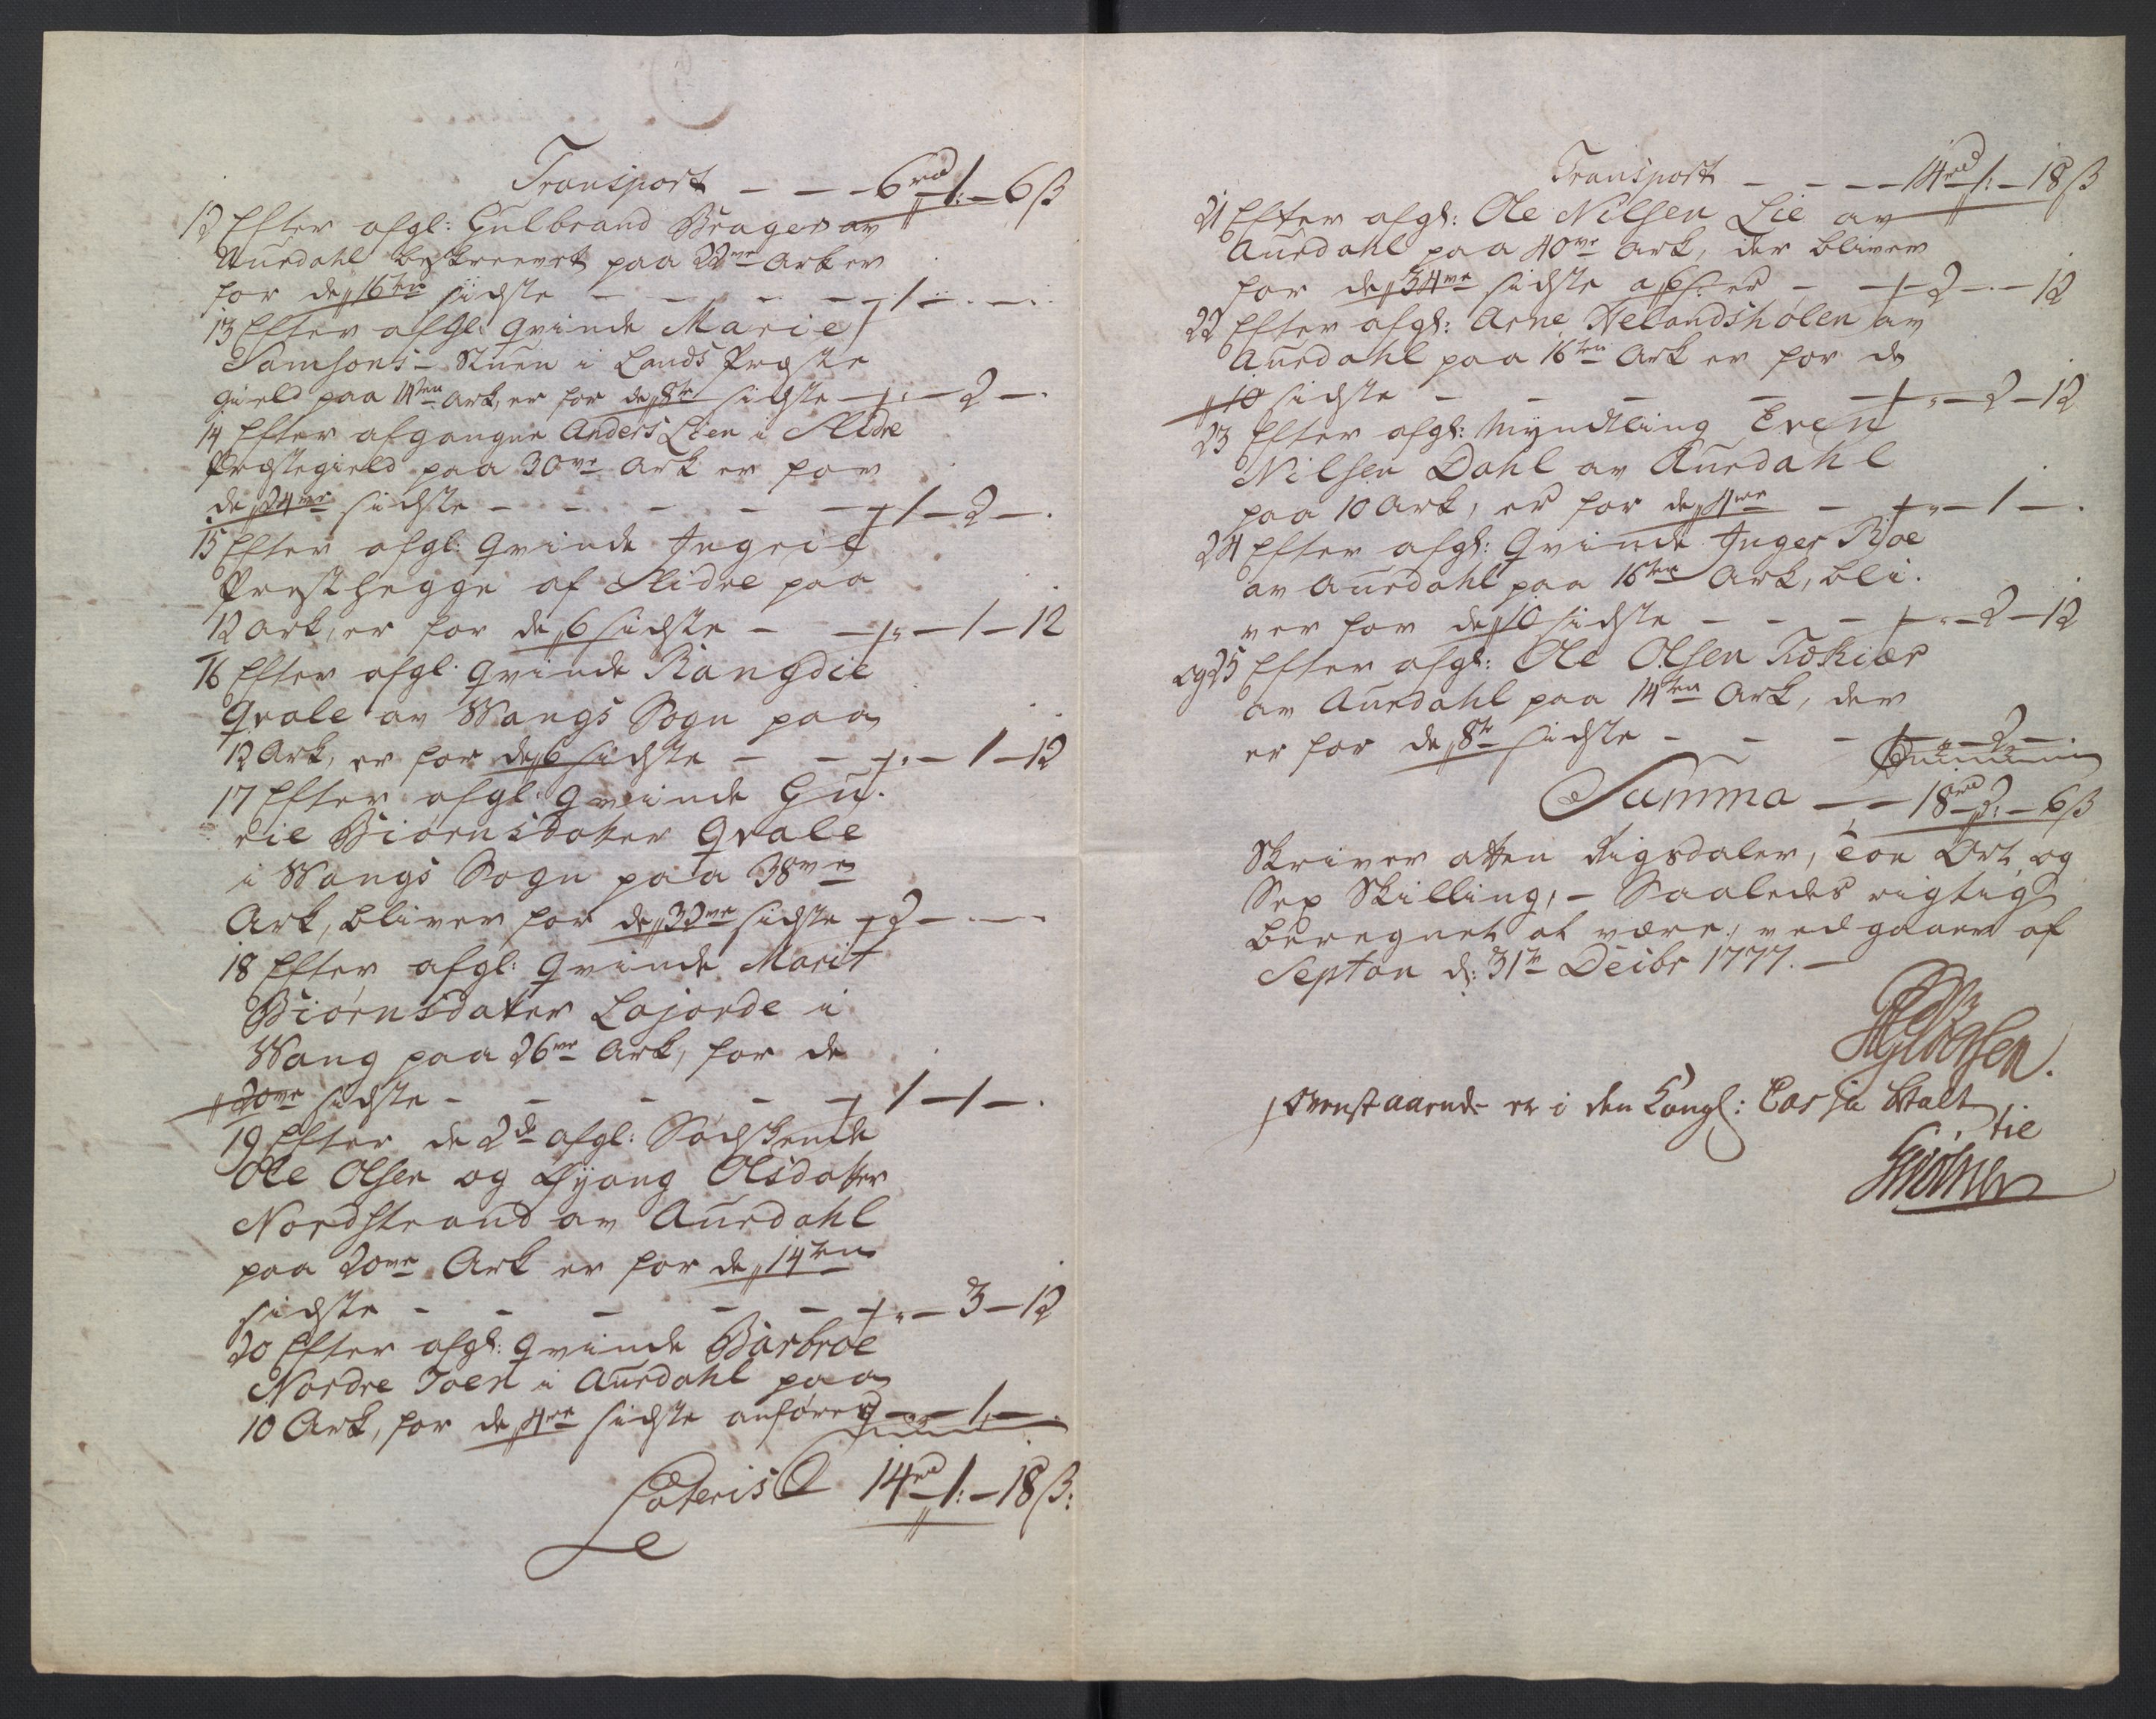 Transport - - - 6rd 1: - 6 ß
12 Efter afgl: Gulbrand Brager av
Aurdahl beskreevet paa 22ve Ark er
for de 16ten sidste - - - - 1 - . -
13 Efter afgl: Qvinde Marie
Samsons-Stuen i Lands Præste
gield paa 14ten Ark, er for de 8te sidste - " - 2 - .
14 Efter afgangne Anders Lien i Slidre
Præstegield paa 30ve Ark er for
de 24ve sidste - - - - - 1 - 2 - .
15 Efter afgl: Qvinde Ingrie
Præsthegge af Slidre paa
12 Ark, er for de 6 sidste - - " - 1 - 12
16 Efter afgl: Qvinde Rangdie
Qvale av Wangs Sogn paa
12 Ark, er for de 6 sidste - - " - 1 - 12
17 Efter afgl: Qvinde Gu-
rie Biørnsdatter Qvale
i Wangs Sogn paa 38ve
Ark, bliver for de 32ve sidste 2 - . -
18 Efter afgl: Qvinde Marit
Biørnsdatter Lajorde i
Wang paa 26ve Ark, for de
20ve sidste - - - - 1 - 1 - .
19 Efter de 2de afgl: Sødskende
Ole Olsen og Olsdatter
Nordstrand av Aurdahl
paa 20ve Ark er for de 14ten
sidste - - - - - " - 3 - 12
20 Efter afgl: Qvinde Barbroe
Nordre Toen i Aurdahl paa
10 Ark, for de 4re sidste anføres - - 1 - .
Lateris 14rd 1: - 18 ß:
Transport - - - - 14rd 1: - 18 ß
21 Efter afgl: Ole Nilsen Lie av
Aurdahl paa 40ve Ark, der bliver
for de 34ve sidste - - 2 - - 12
22 Efter afgl: Arne Helandshølen av
Aurdahl paa 16ten Ark er for de
10 sidste - - - - - " - 2 - 12
23 Efter afgl: Myndtling Even
Nilsen Dahl av Aurdahl
paa 10 Ark, er for de 4re - " - 1 - .
24 Efter afgl: Qvinde Inger Boe
av Aurdahl paa 16ten Ark, bli-
ver for de 10 sidste - - - " - 2 - 12
og 25 Efter afgl: Ole Olsen
av Aurdahl paa 14ten Ark, der
er for de 8te sidste - - - " - 2 - .
Summa - - 18rd 2: - 6 ß
Skriver atten Rigsdaler, toe Ort og
Sex Skilling, - Saaledes rigtig
beregnet at være, vedgaaer af
Septon d: 31te Decibr 1777. -
Ovenstaaende er i den Kongl: Cassa betalt